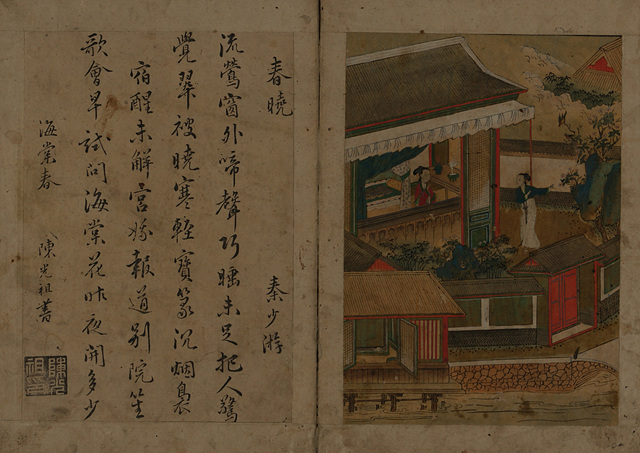 春曉
秦少游
流鶯窗外啼聲巧睡未足把人驚
覺翠被曉寒輕寶篆沉烟裊
宿酲未解宮娥報道別院笙
歌會早試問海棠花昨夜開多少
海棠春
陳光祖書
陳光祖印